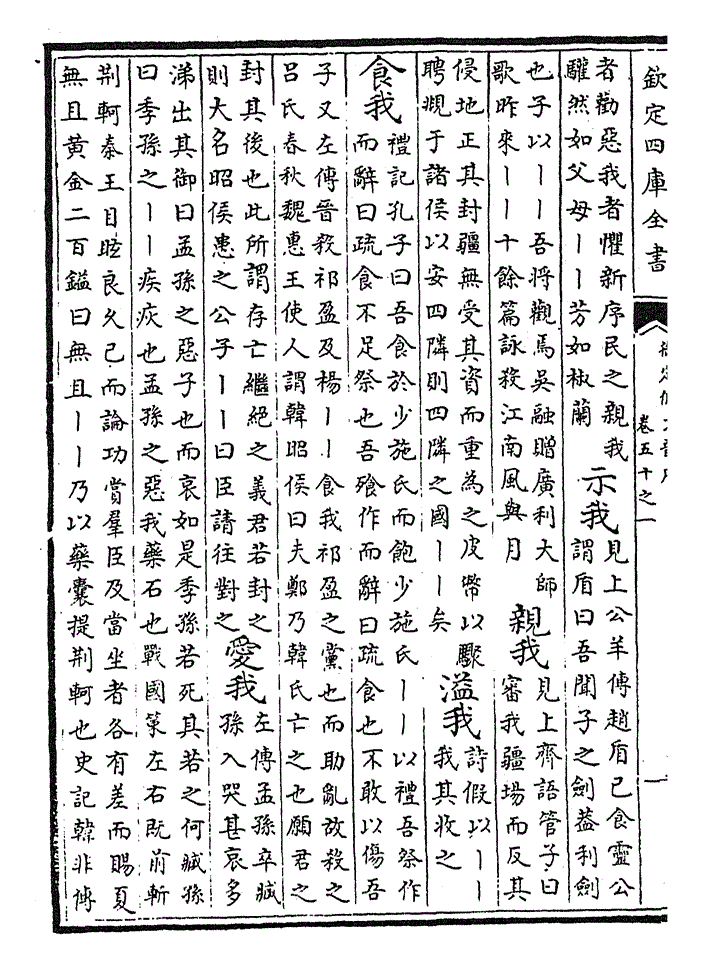 欽定四庫全書
卷五十之一
者勸惡我者懼新序民之親我
驩然如父母丨丨芳如椒蘭
示我
見上公羊傳趙盾已食靈公
謂盾曰吾聞子之劍葢利劍
也子以丨丨吾將觀焉吳融贈廣利大師
歌昨來丨丨十餘篇詠殺江南風與月
親我
見上齊語管子曰
審我疆埸而反其
侵地正其封疆無受其資而重為之皮幣以驟
聘覜于諸侯以安四隣則四隣之國丨丨矣
溢我
詩假以丨丨
我其收之
食我
禮記孔子曰吾食於少施氏而飽少施氏丨丨以禮吾祭作
而辭曰疏食不足祭也吾飱作而辭曰疏食也不敢以傷吾
子又左傳晉殺祁盈及楊丨丨食我祁盈之黨也而助亂故殺之
呂氏春秋魏惠王使人謂韓昭侯曰夫鄭乃韓氏亡之也願君之
封其後也此所謂存亡繼絕之義君若封之
則大名昭侯患之公子丨丨曰臣請往對之
愛我
左傳孟孫卒臧
孫入哭甚哀多
涕出其御曰孟孫之惡子也而哀如是季孫若死其若之何臧孫
曰季孫之丨丨疾疢也孟孫之惡我藥石也戰國策左右既前斬
荆軻秦王目眩良久已而論功賞羣臣及當坐者各有差而賜夏
無且黄金二百鎰曰無且丨丨乃以藥囊提荆軻也史記韓非傳